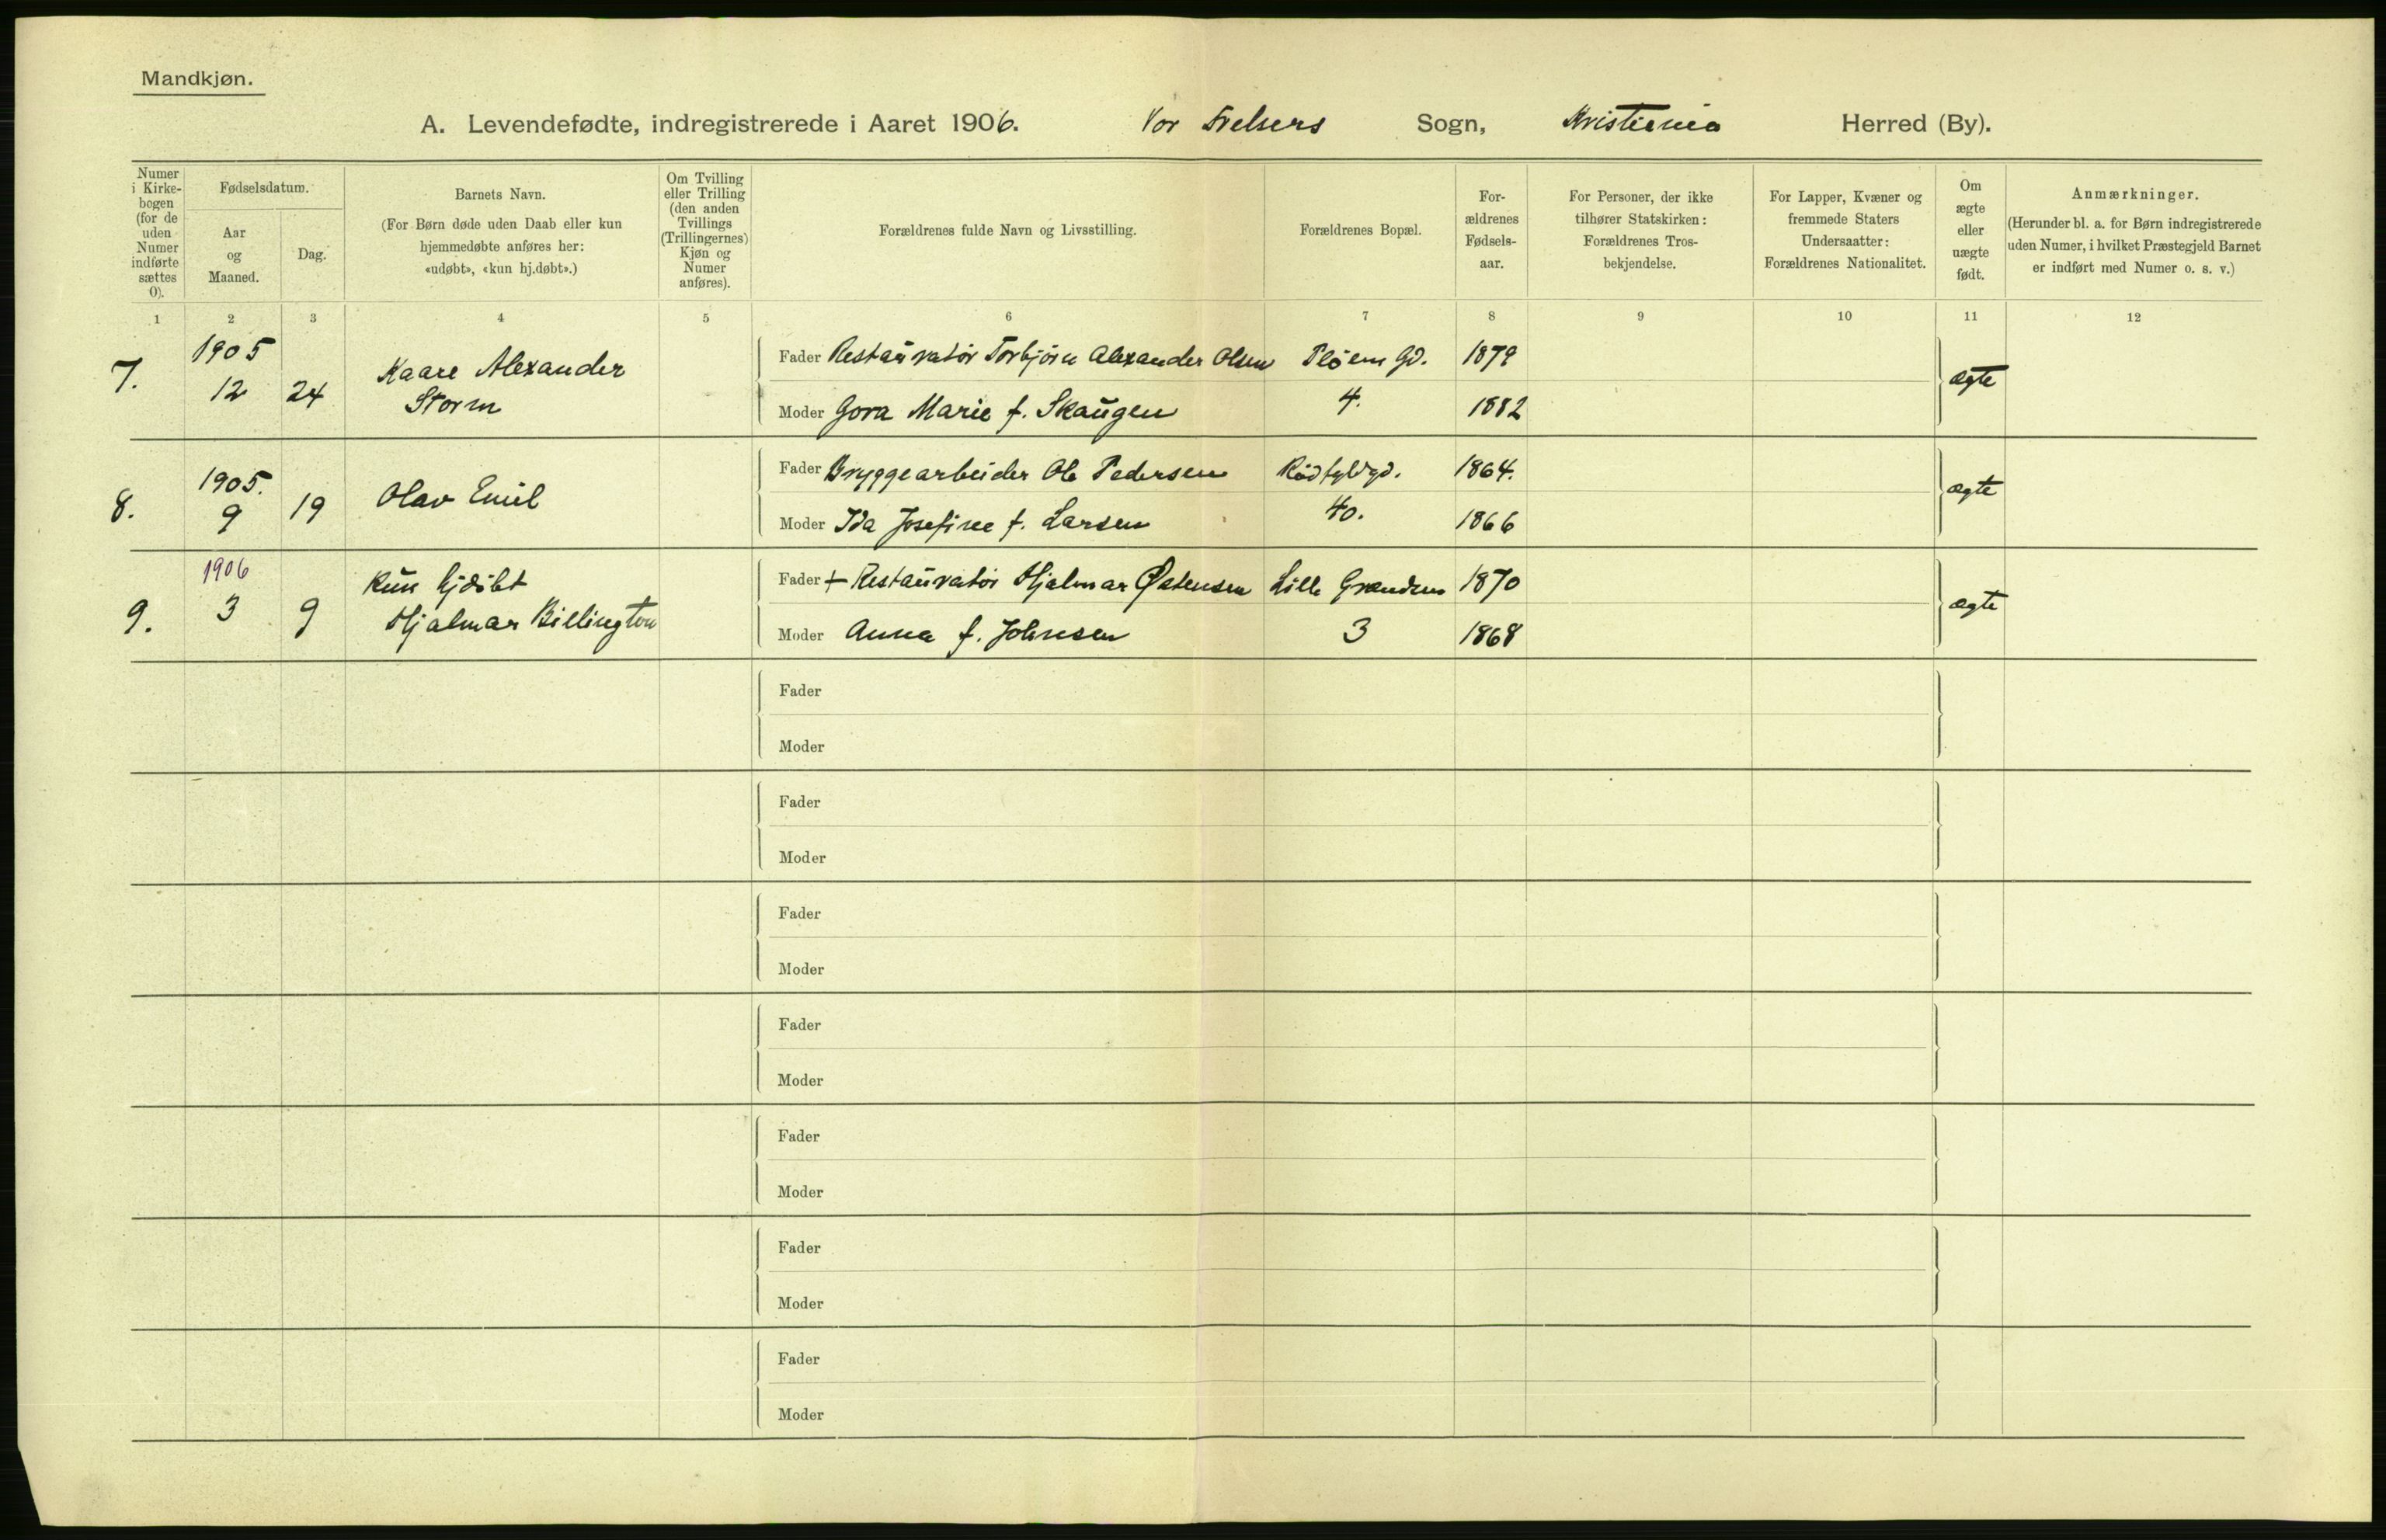 Mandkjøn.
A. Levendefødte, indregistrerede i Aaret 1906. Vor Frelsers Sogn, Kristiania Herred (By).
Numer i Kirke-bogen (for de uden Numer indførte sættes 0).
Fødselsdatum.
Aar og Maaned.
Dag.
Barnets Navn.
(For Børn døde uden Daab eller kun
hjemmedøbte anføres her:
«udøbt», «kun hj.døbt».)
Om Tvilling
eller Trilling
(den anden
Tvillings
(Trillingernes)
Kjøn og
Numer
anføres).
Forældrenes fulde Navn og Livsstilling.
Forældrenes Bopæl.
For-
ældrenes
Fødsels-
aar.
For Personer, der ikke
tilhører Statskirken:
Forældrenes Tros-
bekjendelse.
For Lapper, Kvæner og
fremmede Staters
Undersaatter:
Forældrenes Nationalitet.
Om
ægte
eller
uægte
født.
Anmærkninger.
(Herunder bl. a. for Børn indregistrerede
uden Numer, i hvilket Præstegjeld Barnet
er indført med Numer o. s. v.)
1 2 3 4 5 6 7 8 9 10 11 12
7. 1905 12 24 Kaare Alexander Storm
Fader Restauratør Torbjörn Alexander Olsen Pløens Gd. 1879
Moder Gora Marie f. Skaugen 4. 1882
ægte
8. 1905. 9 19 Olav Emil
Fader Bryggearbeider Ole Pedersen Rødfyldgd. 1864.
Moder Ida Josefine f. Larsen 40. 1866
ægte
9. 1906 3 9 Kun hjdøbt
Hjalmar Billington
Fader + Restauratör Hjalmar Østensen Lille Grændsen 1870
Moder Anna f. Johnsen 3 1868
ægte
Fader
Moder
Fader
Moder
Fader
Moder
Fader
Moder
Fader
Moder
Fader
Moder
Fader
Moder